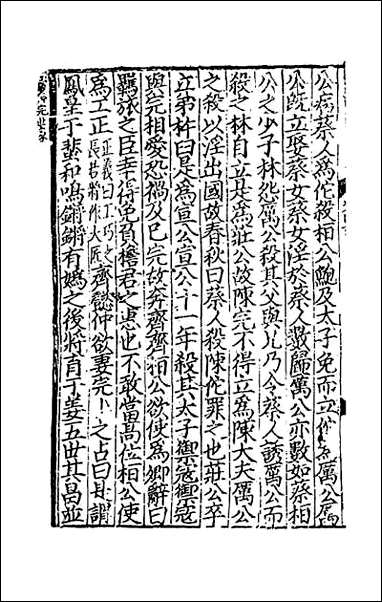 公病蔡人爲佗殺桓公鮑及太子免而立佗爲厲公厲
公旣立娶蔡女蔡女淫於蔡人數歸厲公亦數如蔡桓
公之少子林怨厲公殺其父與兄乃令蔡人誘厲公而
殺之林自立是爲莊公故陳完不得立爲陳大夫厲公
之殺以淫出國故春秋曰蔡人殺陳佗罪之也莊公卒
立弟杵臼是爲宣公宣公十一年殺其太子禦寇禦寇
與完相愛恐禍及己完故奔齊齊桓公欲使爲卿辭曰
羈旅之臣幸得免負檐君之惠也不敢當高位桓公使
爲工正 正義曰工巧之長若將作大匠 齊懿仲欲妻完卜之占曰是謂
鳳皇于蜚和鳴鏘鏘有嬀之後將育于姜五世其昌並